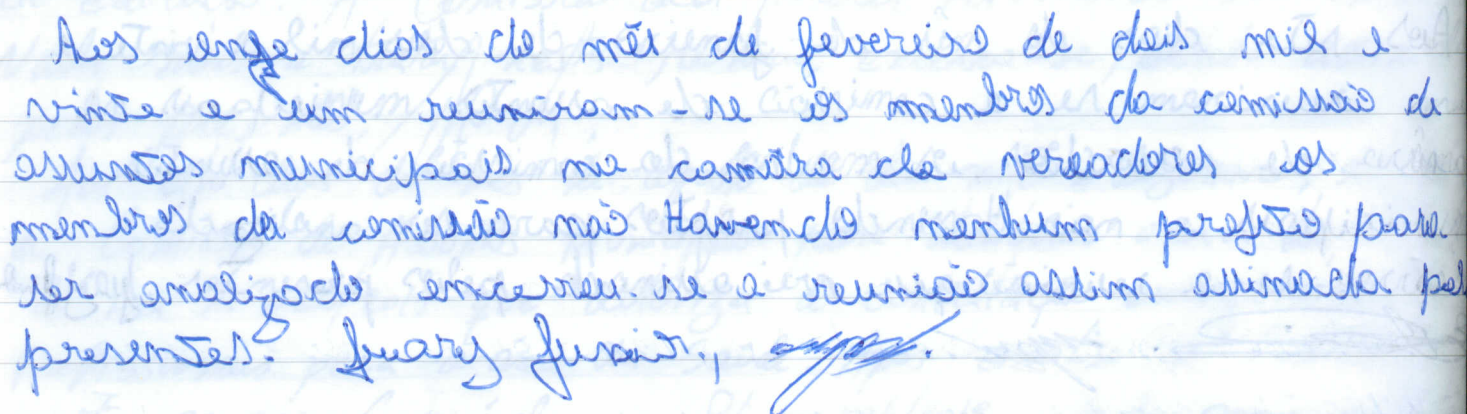 Aos onze dias do mês de fevereiro de dois mil e
vinte e um reuniram-se os menbros da comissão de
assuntos municipais na camâra de vereadores os
menbros da comissão não Havendo nenhum projeto para
ser analizado encerrou-se a reunião assim assinada pelos
presentes.